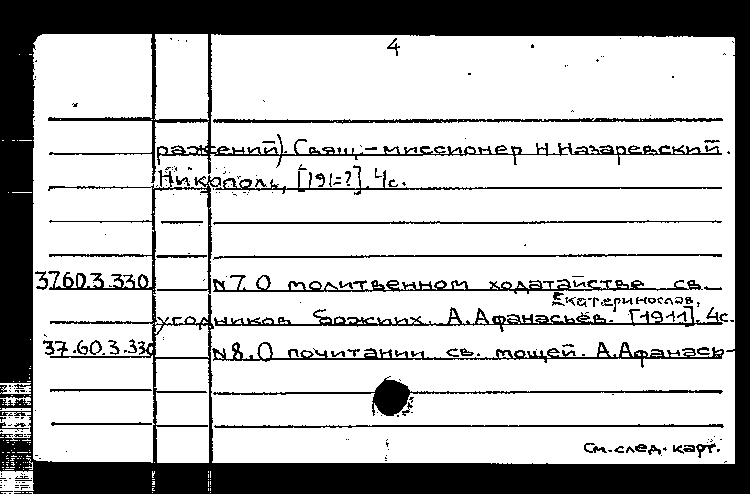 4
ражений). Свящ.-миссионер Н.Назаревский.
Никополь, [191=?]. 4с.
37.60.3.330 N7. О молитвенном ходатайстве св.
Екатеринослав,
угодников божиих. А.Афанасьев. [1911]. 4с.
37.60.3.330 N8. О почитании св. мощей. А.Афанась-
См.след.карт.